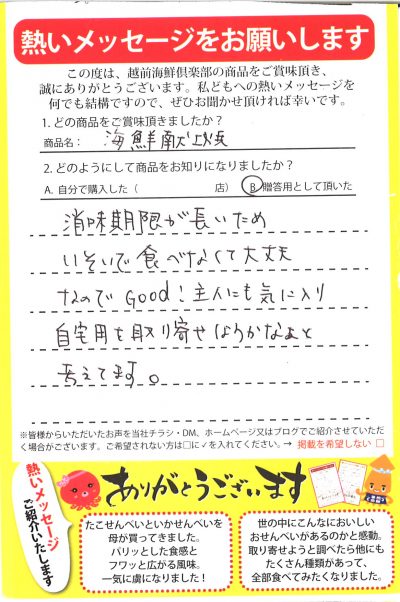 熱いメッセージをお願いします
この度は、越前海鮮倶楽部の商品をご賞味頂き、
誠にありがとうございます。私どもへの熱いメッセージを
何でも結構ですので、ぜひお聞かせ頂ければ幸いです。
1. どの商品をご賞味頂きましたか？
商品名： 海鮮献上浜
2. どのようにして商品をお知りになりましたか？
A. 自分で購入した（ 店） B 贈答用として頂いた
消味期限が長いため
いそいで食べなくて大丈夫
なのでGood！主人にも気に入り
自宅用を取り寄せようかなぁと
考えてます。
※皆様からいただいたお声を当社チラシ・DM、ホームページ又はブログでご紹介させていただ
く場合がございます。ご希望されない方は□に✓を入れてください。→ 掲載を希望しない □
熱いメッセージ
ご紹介いたします
ありがとうございます
たこせんべいといかせんべいを
母が買ってきました。
パリッとした食感と
フワッと広がる風味。
一気に虜になりました！
世の中にこんなにおいしい
おせんべいがあるのかと感動。
取り寄せようと調べたら他にも
たくさん種類があって、
全部食べてみたくなりました。